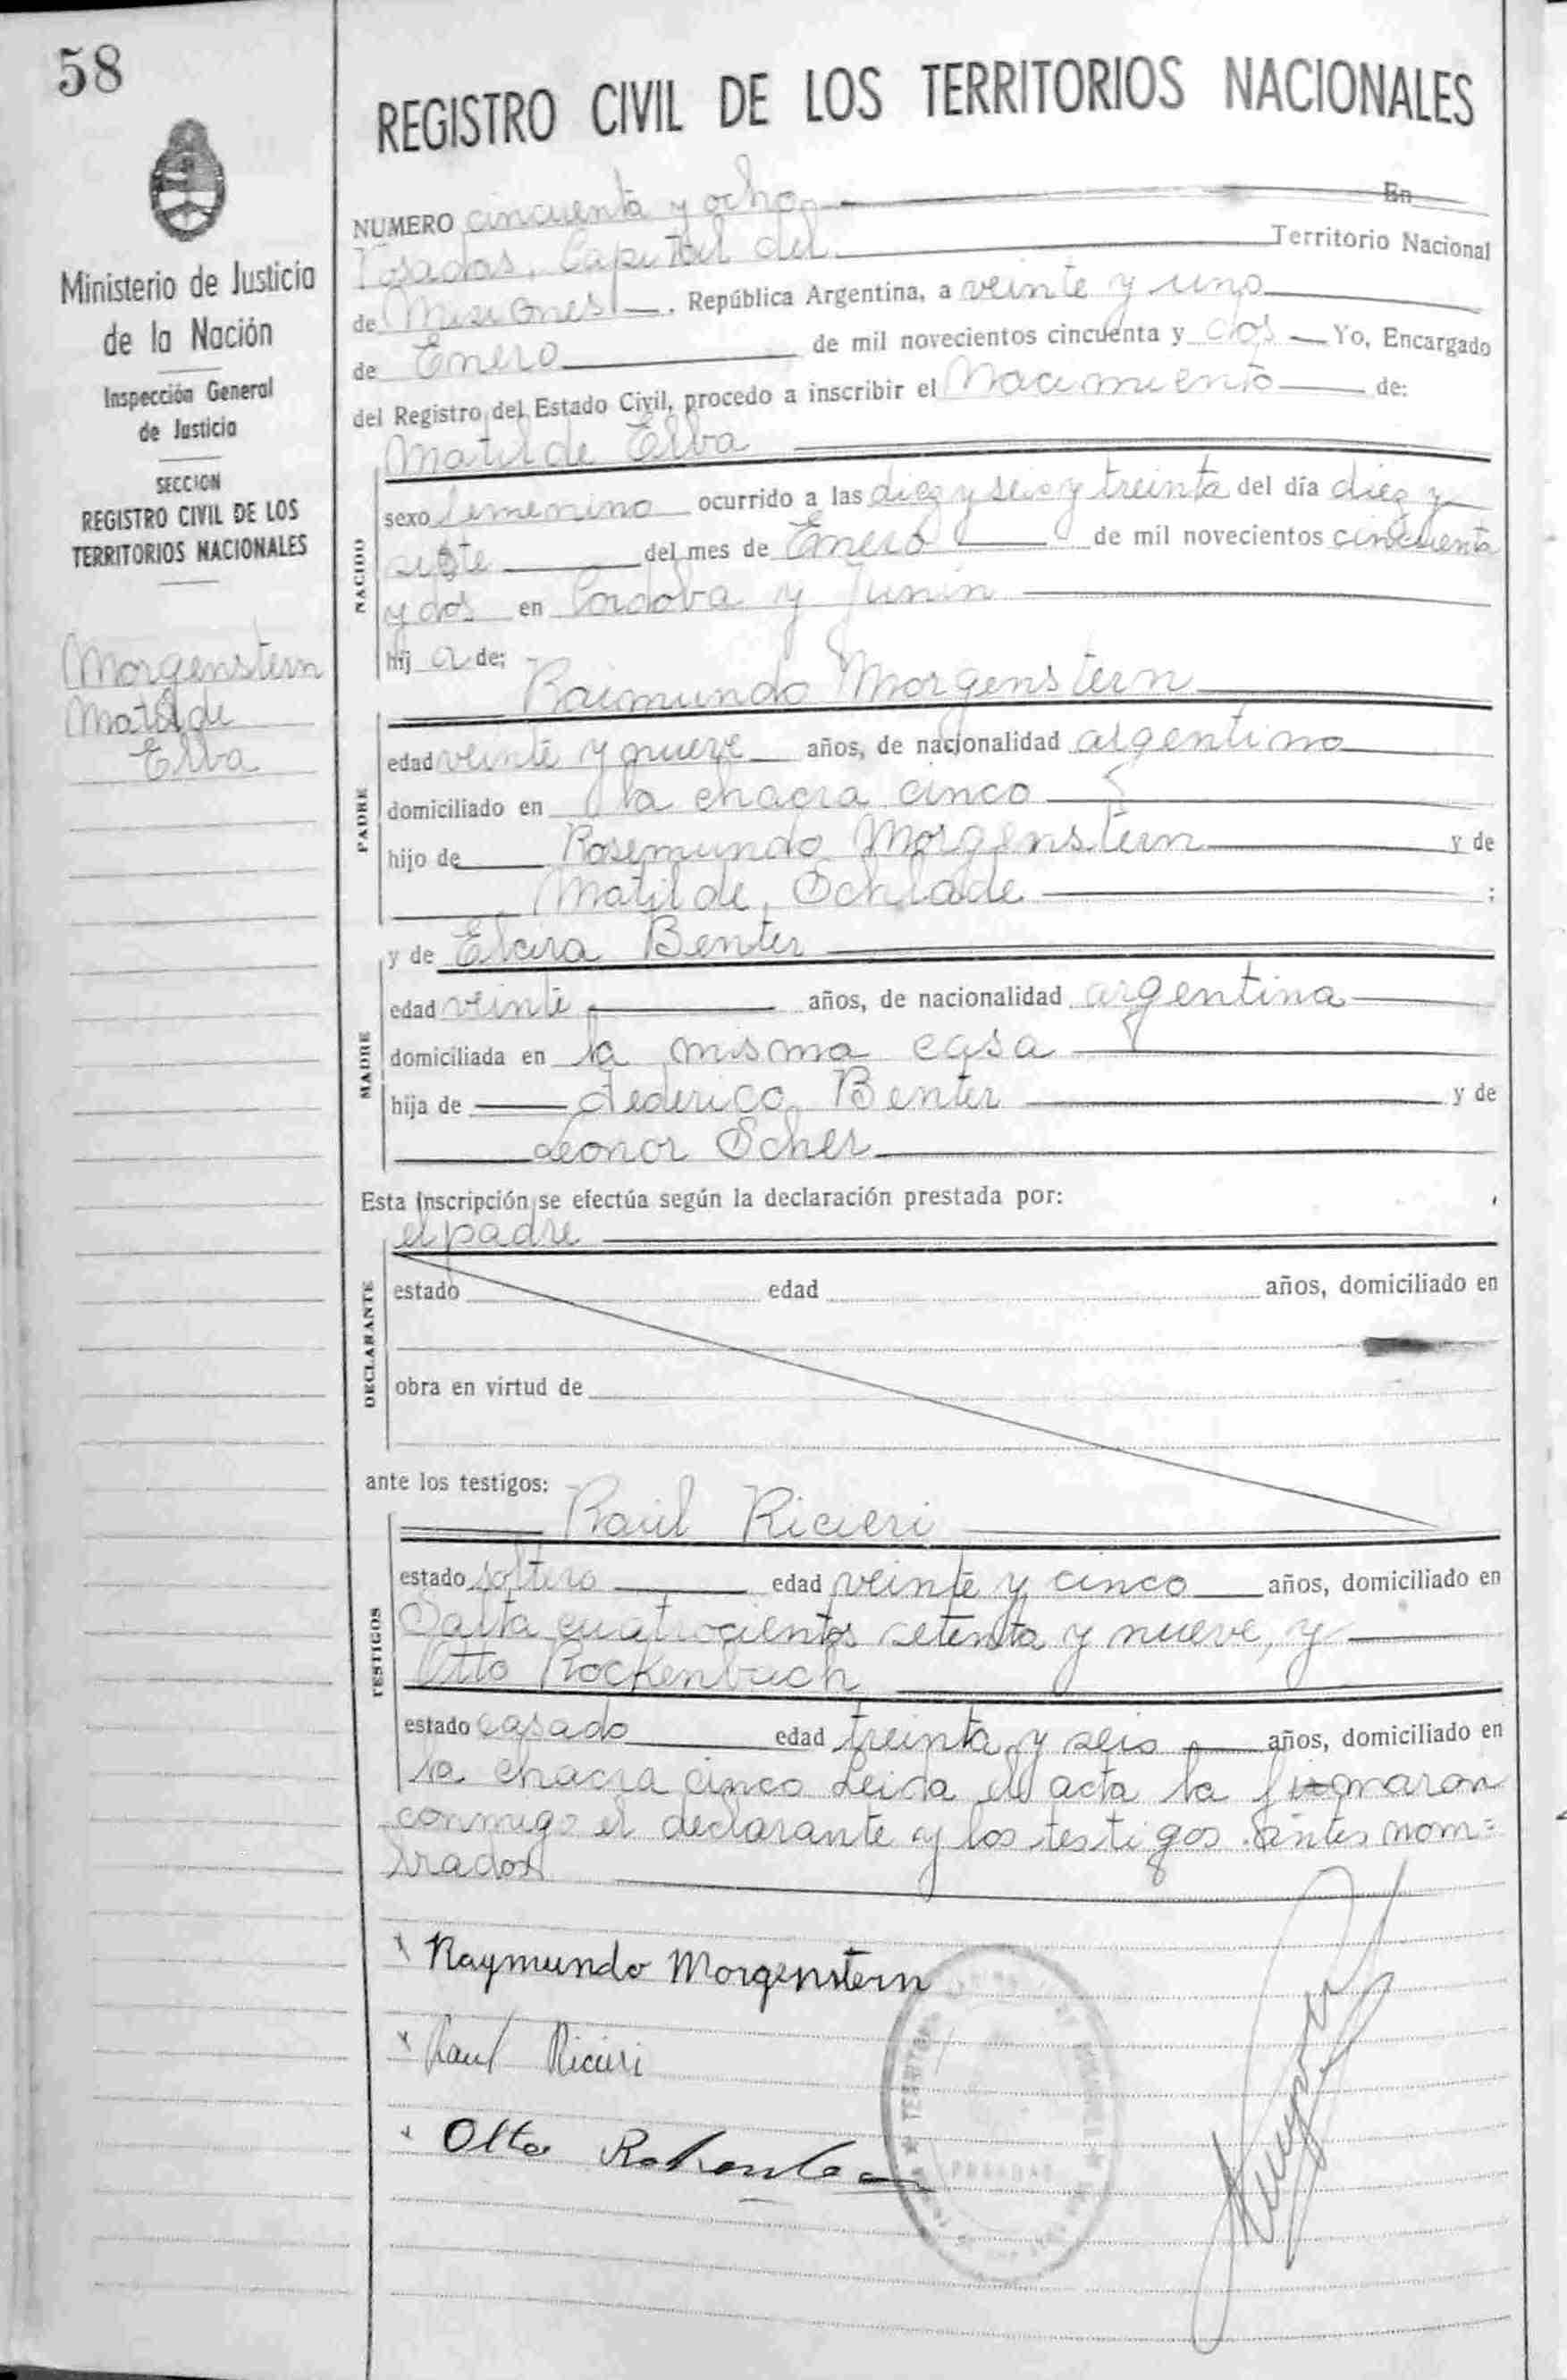 58
Ministerio de Justicia
de la Nación
Inspección General
de Justicia
SECCION
REGISTRO CIVIL DE LOS
TERRITORIOS NACIONALES
Morgenstern
Matilde
Elba
REGISTRO CIVIL DE LOS TERRITORIOS NACIONALES
NUMERO cincuenta y ocho En
Posadas, Capital del Territorio Nacional
de Misiones, República Argentina, a veinte y uno
de Enero de mil novecientos cincuenta y dos Yo, Encargado
del Registro del Estado Civil, procedo a inscribir el Nacimiento de:
Matilde Elba
NACIDO
sexo femenino ocurrido a las diez y seis y treinta del día diez y
siete del mes de Enero de mil novecientos cincuenta
y dos en Cordoba y Junin
hij a de:
Raimundo Morgenstern
PADRE
edad veinte y nueve años, de nacionalidad argentino
domiciliado en la chacra cinco
hijo de Rosemundo Morgenstern y de
Matilde Schlade ;
y de Elcira Benter
MADRE
edad veinte años, de nacionalidad argentina
domiciliada en la misma casa
hija de Federico Benter y de
Leonor Scher
Esta inscripción se efectúa según la declaración prestada por:
el padre
DECLARANTE
estado edad años, domiciliado en
obra en virtud de
ante los testigos:
Raúl Ricieri
TESTIGOS
estado soltero edad veinte y cinco años, domiciliado en
Salta cuatrocientos setenta y nueve, y
Otto Rockenbach
estado casado edad treinta y seis años, domiciliado en
la chacra cinco Leida el acta la firmaron
conmigo el declarante y los testigos antes nom=
brados
x Raymundo Morgenstern
x Raul Ricieri
x Otto
TERRITORIO
POSADAS